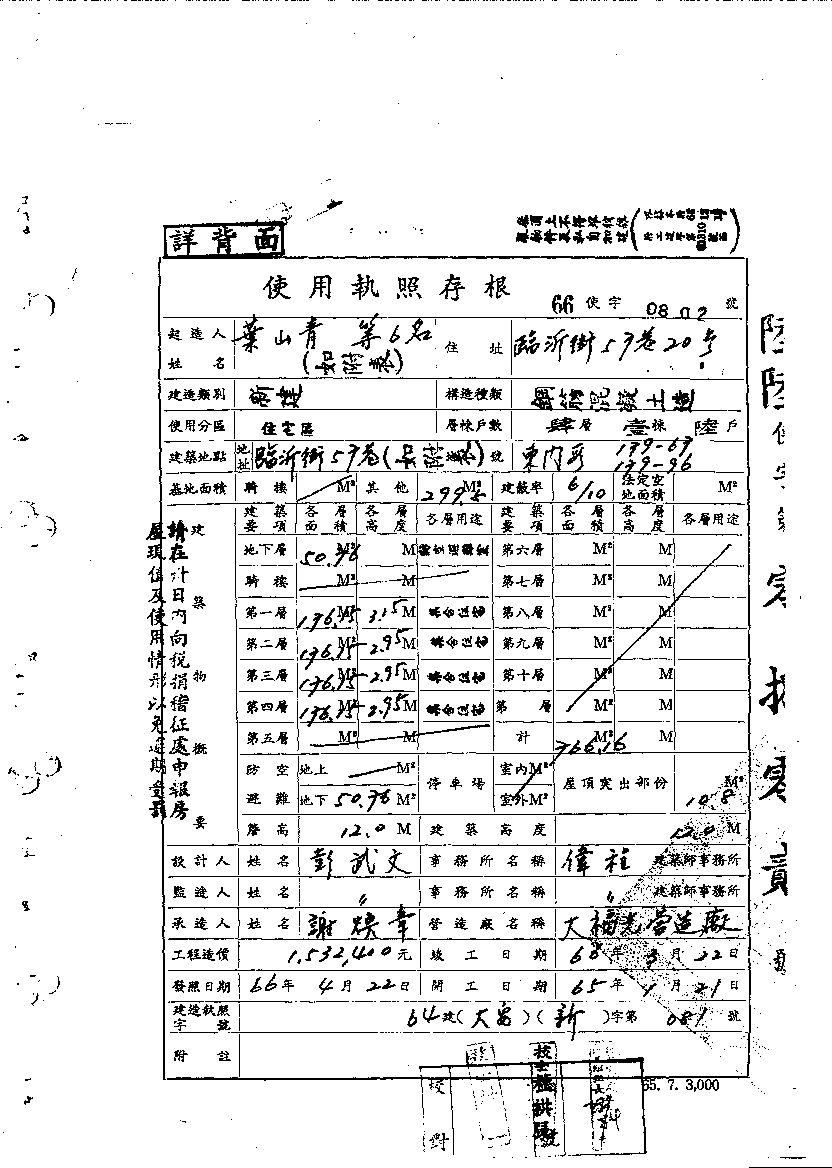 詳背面
使用執照存根
66 使字 0802 號
起造人姓名 葉山青 等6名 (如附表) 住址 臨沂街57巷20号
建造類別 新建 構造種類 鋼筋混凝土造
使用分區 住宅區 層棟戶數 肆層 壹棟 陸戶
建築地點 地址 臨沂街57巷 號 東門段 139-67
139-96
基地面積 騎樓 M² 其他 299.5 M² 建蔽率 6/10 法定空地面積 M²
建築要項 各層面積 各層高度 各層用途 建築要項 各層面積 各層高度 各層用途
建築物概要
地下層 50.76 M² M 第六層 M² M
騎樓 M² M 第七層 M² M
第一層 176.35 M² 3.15 M 集合住宅 第八層 M² M
第二層 176.35 M² 2.95 M 集合住宅 第九層 M² M
第三層 176.35 M² 2.95 M 集合住宅 第十層 M² M
第四層 176.35 M² 2.95 M 集合住宅 第 層 M² M
第五層 M² M 計 766.16
防空避難 地上 M² 停車場 室內 M² 屋頂突出部份 10.8 M²
地下 50.76 M² 室外 M²
簷高 12.0 M 建築高度 12.0 M
設計人 姓名 彭武文 事務所名稱 偉柱 建築師事務所
監造人 姓名 〃 事務所名稱 〃 建築師事務所
承造人 姓名 謝煥章 營造廠名稱 大福光營造廠
工程造價 1,532,400元 竣工日期 66年3月22日
發照日期 66年4月22日 開工日期 65年1月21日
建造執照字號 64建(大安)(新)字第 081 號
附註
65. 7. 3,000
校對
請在卅日內向稅捐稽征處申報房
屋現值及使用情形以免逾期受罰